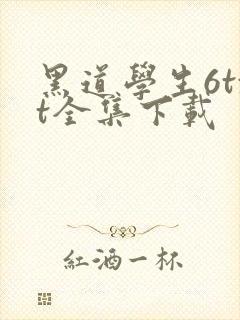 黑道學生6tx
t全集下載
紅酒一杯